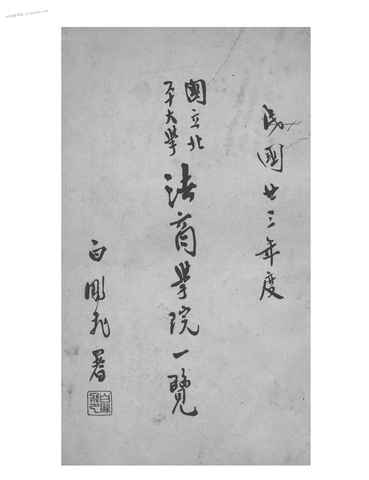 民國廿三年度
國立北
平大學
法商學院一覽
白鵬飛署